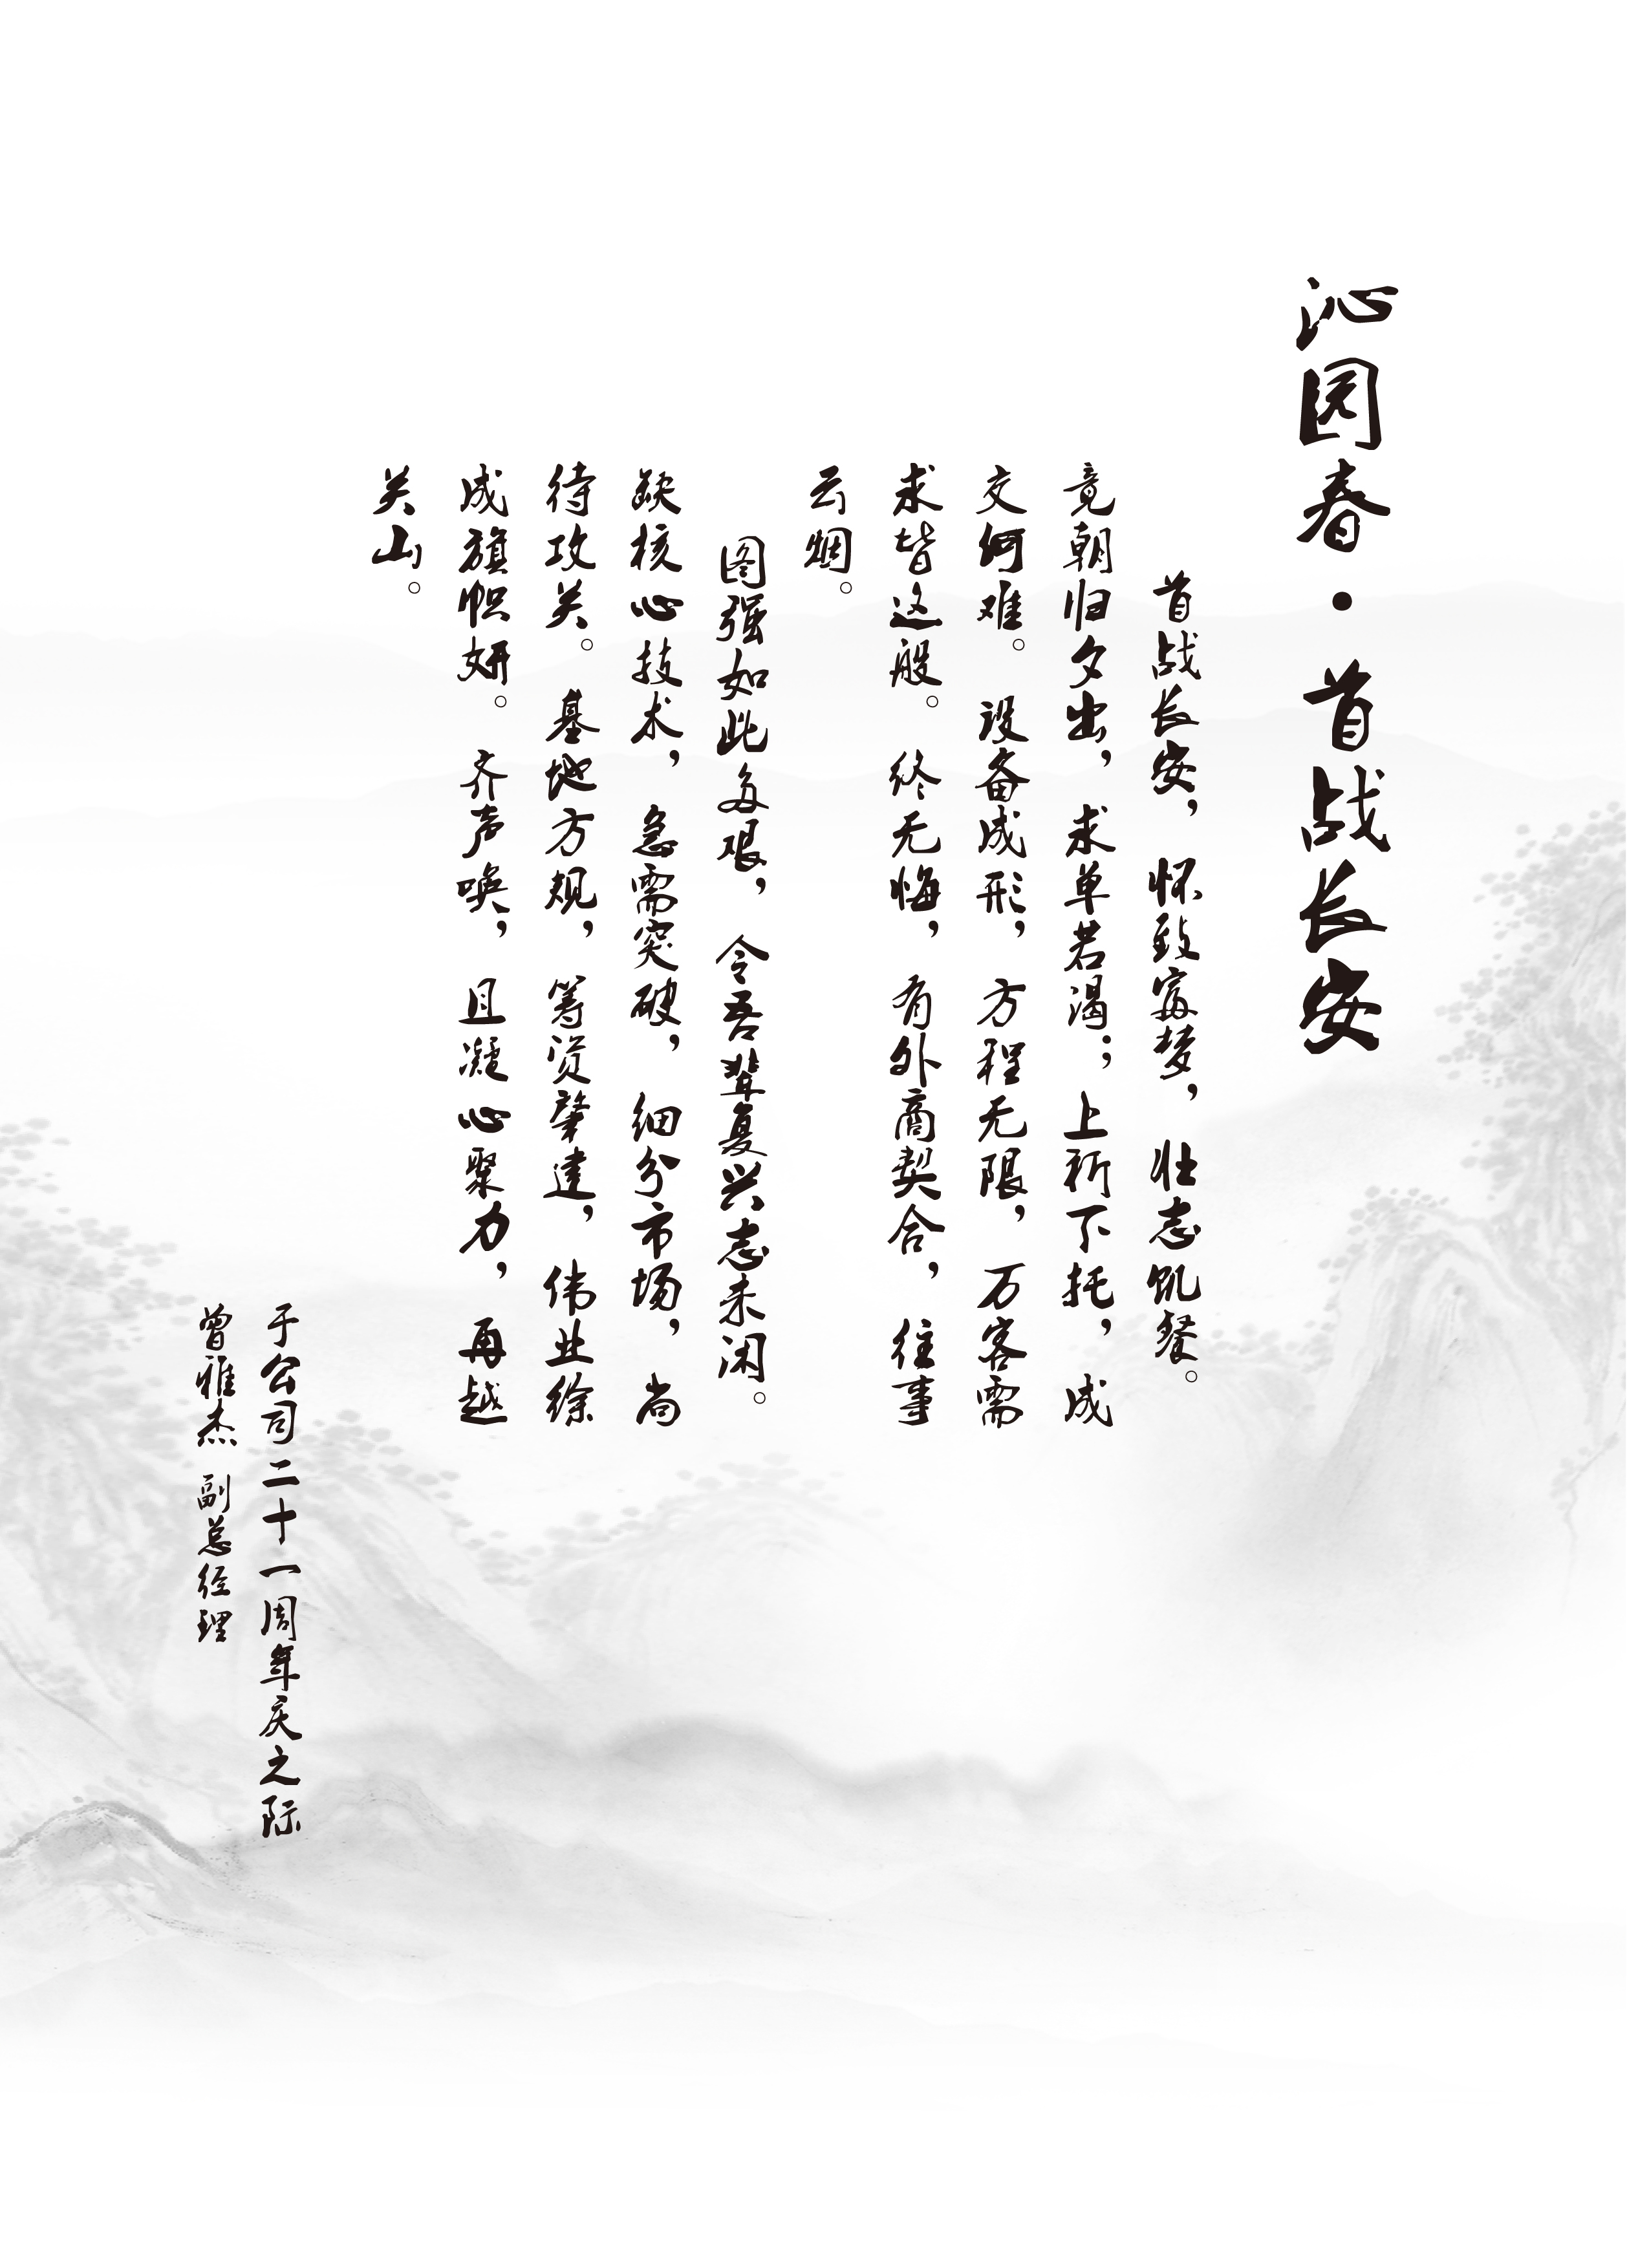 沁园春·首战长安
首战长安，怀致富梦，壮志饥餐。
竟朝归夕出，求单若渴；上祈下托，成
交何难。设备成形，方程无限，万客需
求皆这般。终无悔，有外商契合，往事
云烟。
图强如此多艰，令吾辈复兴志未闲。
缺核心技术，急需突破，细分市场，尚
待攻关。基地方规，筹资肇建，伟业综
成旗帜妍。齐声唤，且凝心聚力，再越
关山。
于公司二十一周年庆之际
曾雅杰 副总经理